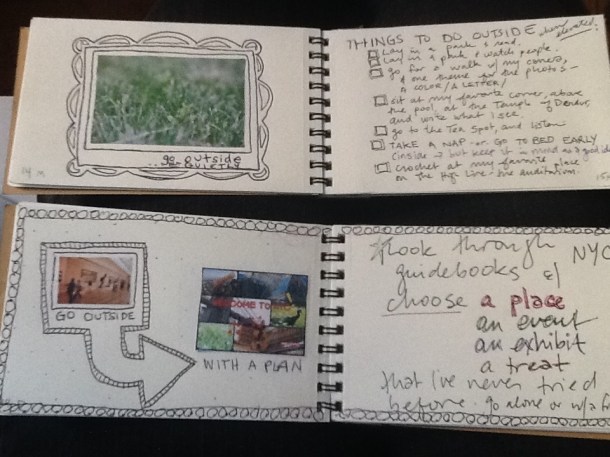 go outside
QUIETLY
THINGS TO DO OUTSIDE
Lay in a park & read.
Lay in a park & watch people.
go for a walk w/ my camera,
& one theme for the photos -
A COLOR / A LETTER /
sit at my favorite corner, above
the pool, at the Temple of Dendur
and write what I see.
go to the Tea Spot, and listen
TAKE A NAP - or GO TO BED EARLY
(inside - but keep it in mind as a good idea
crochet at my favorite place
on the High Line - the auditorium.
GO OUTSIDE
WELCOME TO
WITH A PLAN
look through NYC
guidebooks &
choose a place
an event
an exhibit
a treat
that I've never tried
before. go alone or w/ a